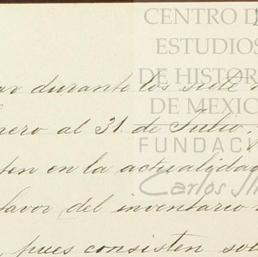 CENTRO DE
ESTUDIOS
DE HISTORIA
DE MEXICO
FUNDAC
Carlos Sl
durante los siete
nero al 31 de Julio,
ten en la actualidad
favor del inventario
, pues consisten sol